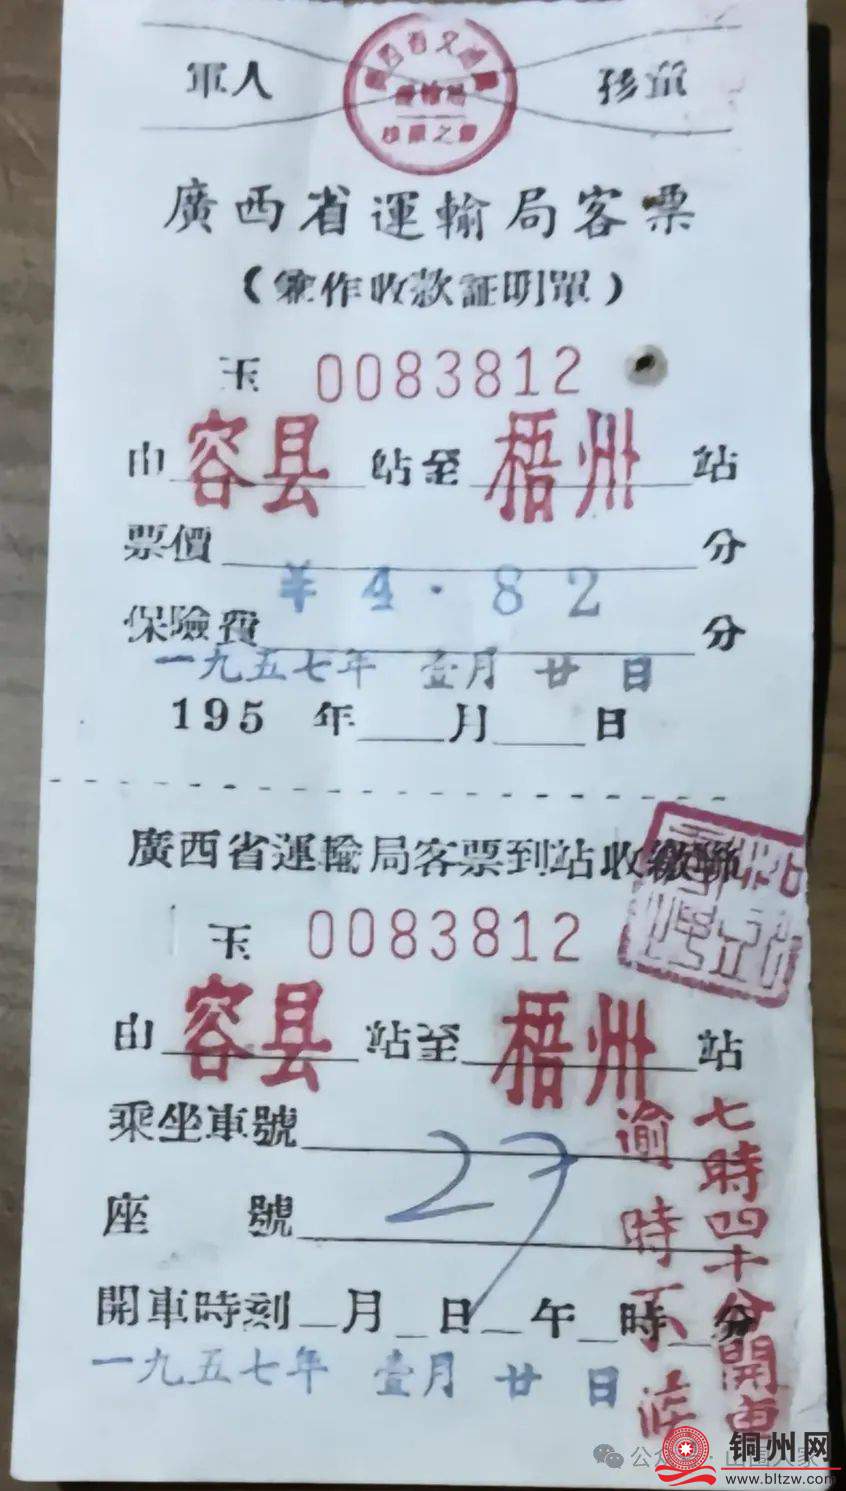 軍人 孩童
廣西省運輸局客票
（兼作收款証明單）
玉 0083812
由 容县 站至 梧州 站
票價 分
¥4.82
保險費 分
一九五七年 壹月 廿 日
195 年 月 日
廣西省運輸局客票到站收繳聯
玉 0083812
由 容县 站至 梧州 站
乘坐車號
座 號
27
開車時刻 月 日 午 時 分
一九五七年 壹月 廿 日
七時四十分開車
逾時不
公众号
铜州网
www.bltzw.com